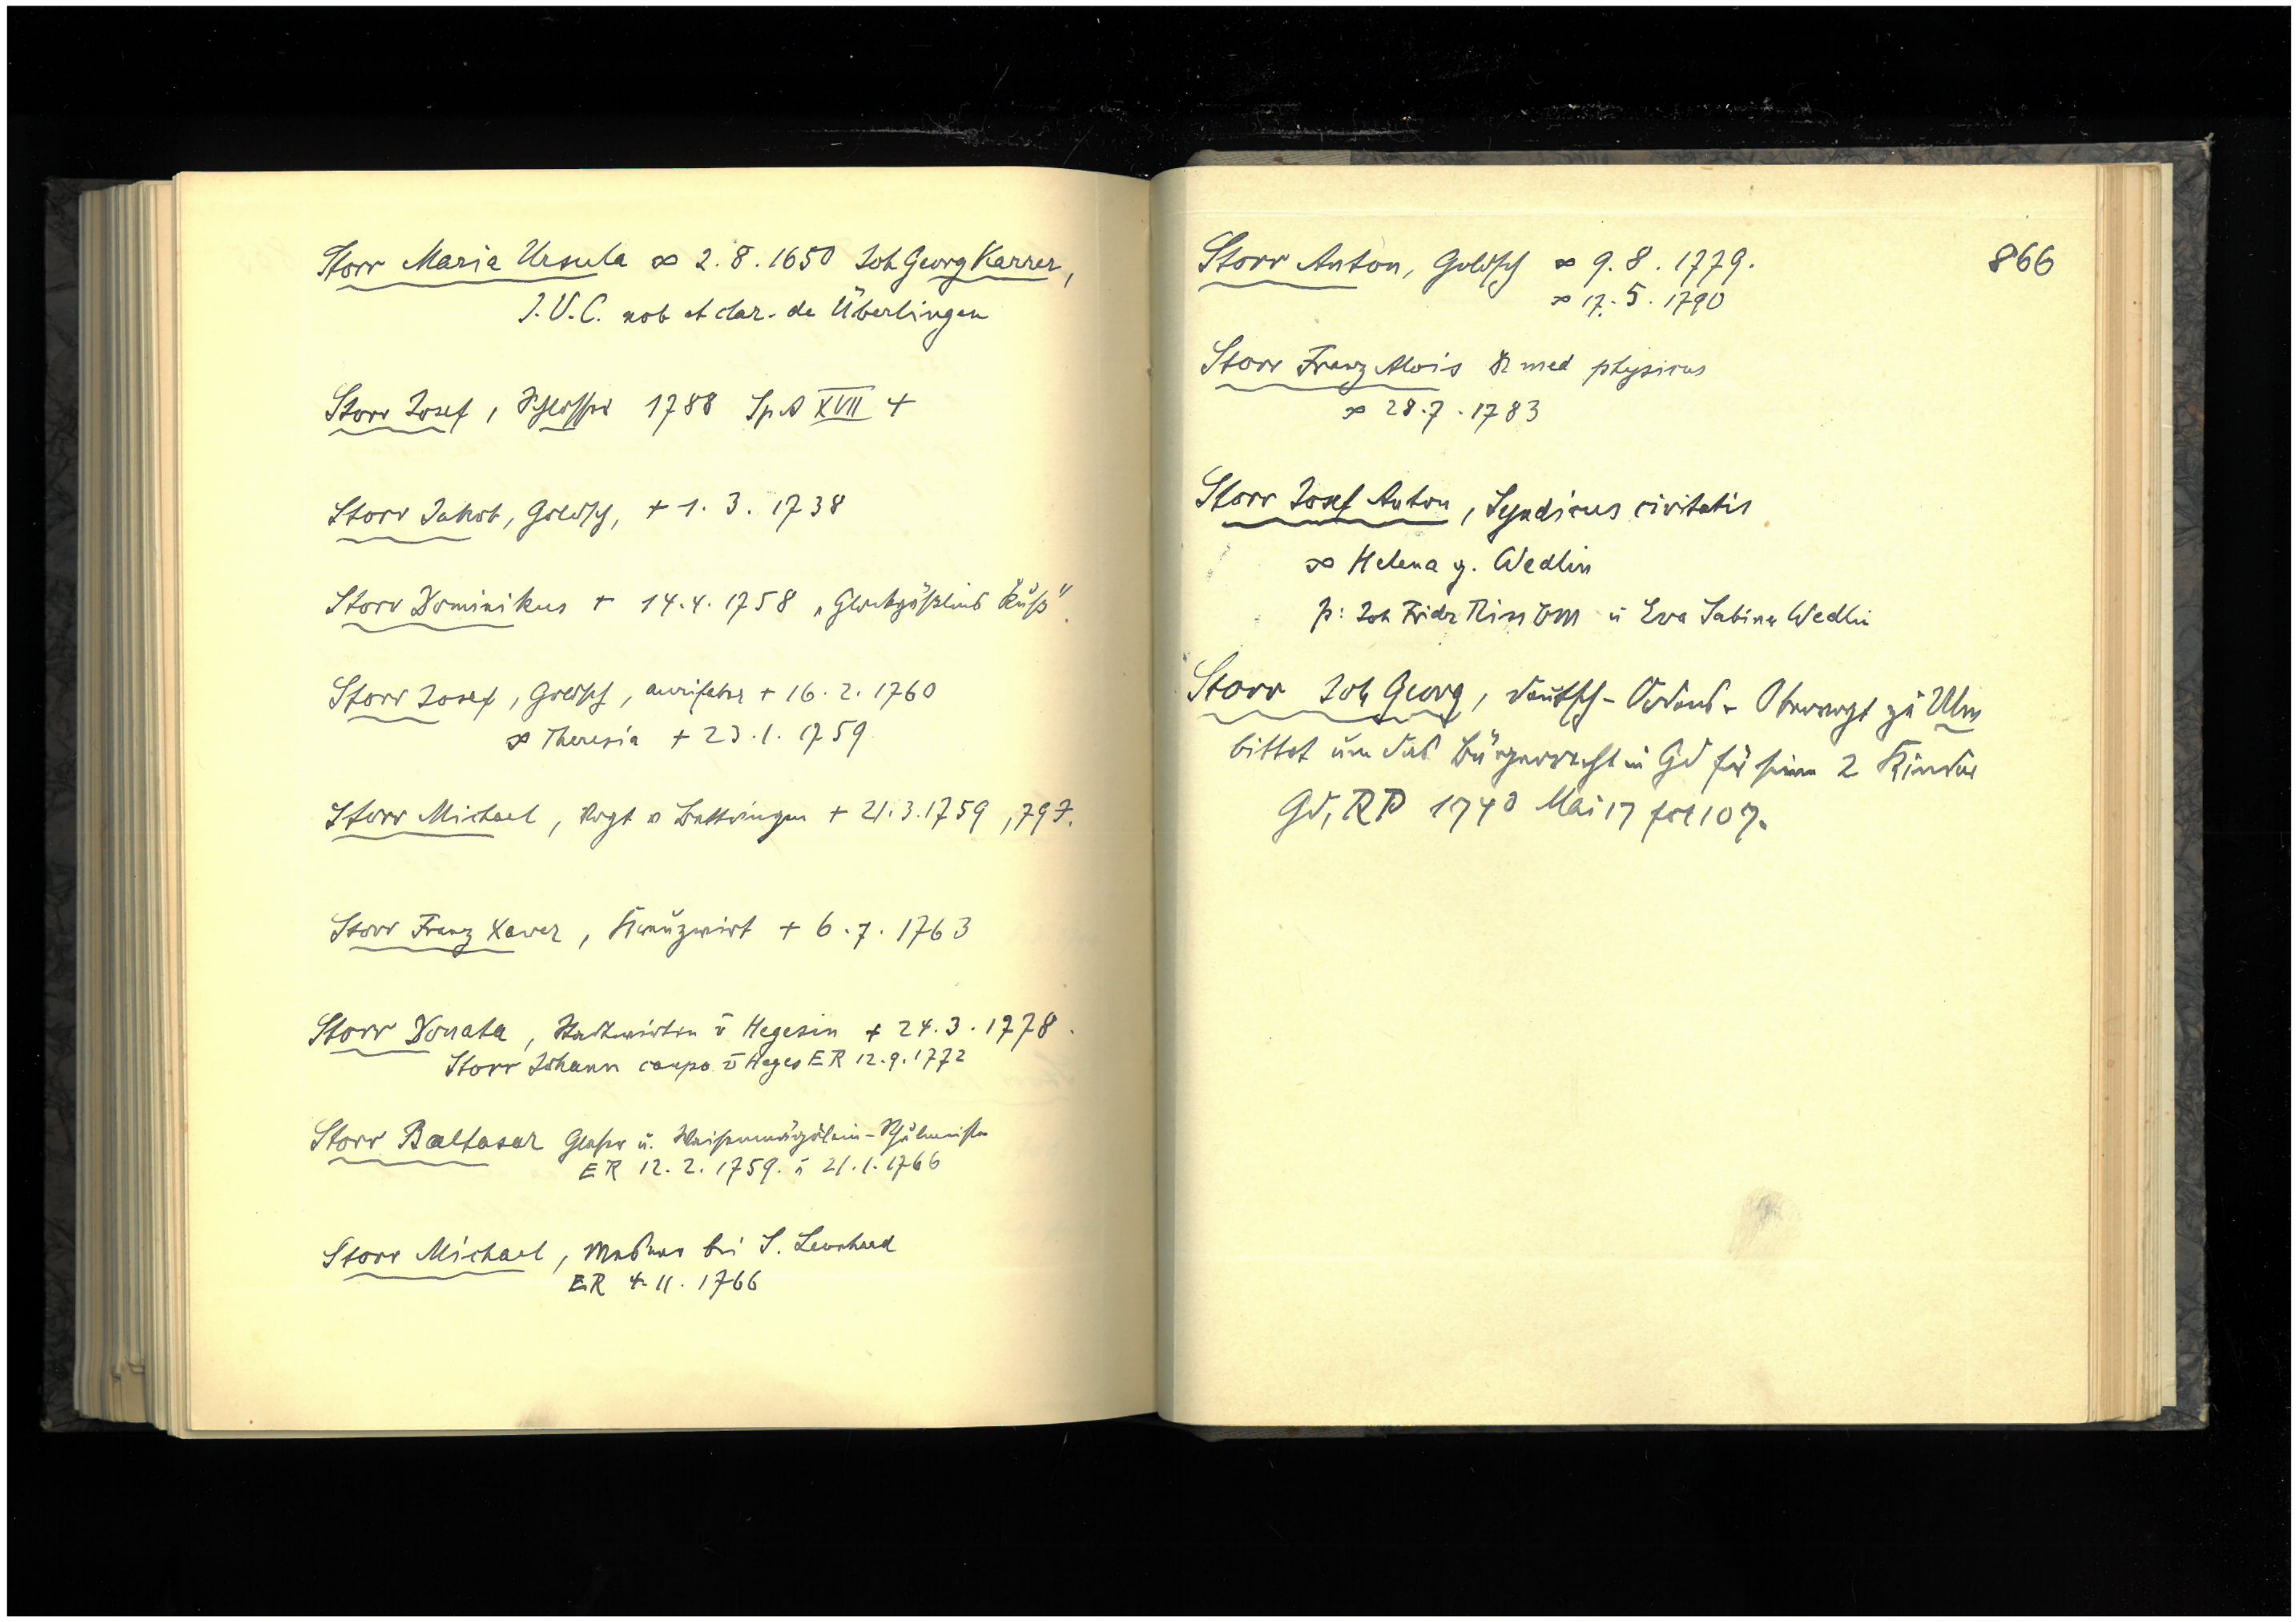 Storr Maria Ursula ∞ 2.8.1650 Joh Georg Karrer,
J.V.C. nob et clar. de Überlingen
Storr Josef, Schlosser 1788 Sp.A XVII 4
Storr Jakob, Goldsch, + 1.3.1738
Storr Dominikus + 14.4.1758
Storr Josef, Goldsch, aurifaber + 16.2.1760
∞ Theresia + 23.1.1759
Storr Michael, Vogt v Bettringen + 21.3.1759, 79J.
Storr Franz Xaver, Kreuzwirt + 6.7.1763
Storr Donata, v Hegesin + 24.3.1778.
Storr Johann caupo v Heges ER 12.9.1772
Storr Baltasar Glaser u. Schulmeister
ER 12.2.1759. u 21.1.1766
Storr Michael, Mesner bei S. Leonhard
ER 4.11.1766
866
Storr Anton, Goldsch ∞ 9.8.1779.
∞ 17.5.1790
Storr Franz Alois Dr med physicus
∞ 28.7.1783
Storr Josef Anton, Syndicus civitatis
∞ Helena g. Wedlin
p: Joh Fridr u Eva Sabina Wedlin
Storr Joh Georg, Deutsch-Ordens-Obervogt zu Ulm
bittet um das Bürgerrecht in Gd für seine 2 Kinder
Gd, RP 1740 Mai 17 fol 107.